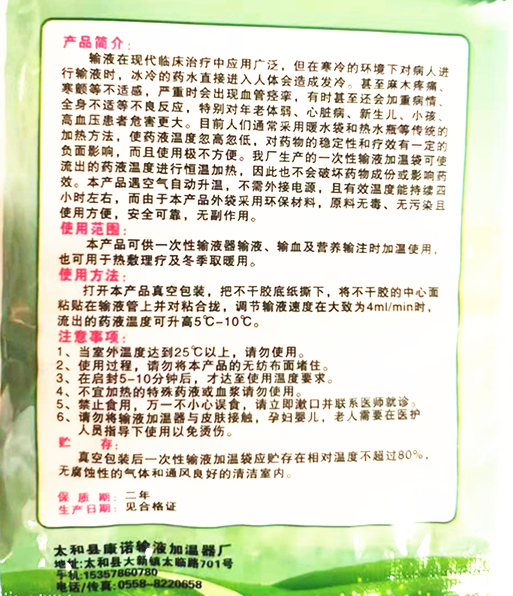 产品简介:
输液在现代临床治疗中应用广泛，但在寒冷的环境下对病人进
行输液时，冰冷的药水直接进入人体会造成发冷。甚至麻木疼痛、
寒颤等不适感，严重时会出现血管痉挛，有时甚至还会加重病情、
全身不适等不良反应，特别对年老体弱、心脏病、新生儿、小孩、
高血压患者危害更大。目前人们通常采用暖水袋和热水瓶等传统的
加热方法，使药液温度忽高忽低，对药物的稳定性和疗效有一定的
负面影响，而且使用极不方便。我厂生产的一次性输液加温袋可使
流出的药液温度进行恒温加热，因此也不会破坏药物成份或影响药
效。本产品遇空气自动升温，不需外接电源，且有效温度能持续四
小时左右，而由于本产品外袋采用环保材料，原料无毒、无污染且
使用方便，安全可靠，无副作用。
使用范围:
本产品可供一次性输液器输液、输血及营养输注时加温使用，
也可用于热敷理疗及冬季取暖用。
使用方法:
打开本产品真空包装，把不干胶底纸撕下，将不干胶的中心面
粘贴在输液管上并对粘合拢，调节输液速度在大致为4ml/min时，
流出的药液温度可升高5℃-10℃。
注意事项:
1、当室外温度达到25℃以上，请勿使用。
2、使用过程，请勿将本产品的无纺布面堵住。
3、在启封5-10分钟后，才达至使用温度要求。
4、不宜加热的特殊药液或血浆请勿使用。
5、禁止食用，万一不小心误食，请立即漱口并联系医师就诊。
6、请勿将输液加温器与皮肤接触，孕妇婴儿，老人需要在医护
人员指导下使用以免烫伤。
贮 存:
真空包装后一次性输液加温袋应贮存在相对温度不超过80%，
无腐蚀性的气体和通风良好的清洁室内。
保 质 期: 二年
生产日期: 见合格证
太和县康诺输液加温器厂
地址:太和县大新镇太临路701号
手机:15357860780
电话/传真:0558-8220658